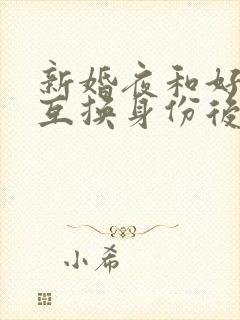 新婚夜和好
互换身份後
小希